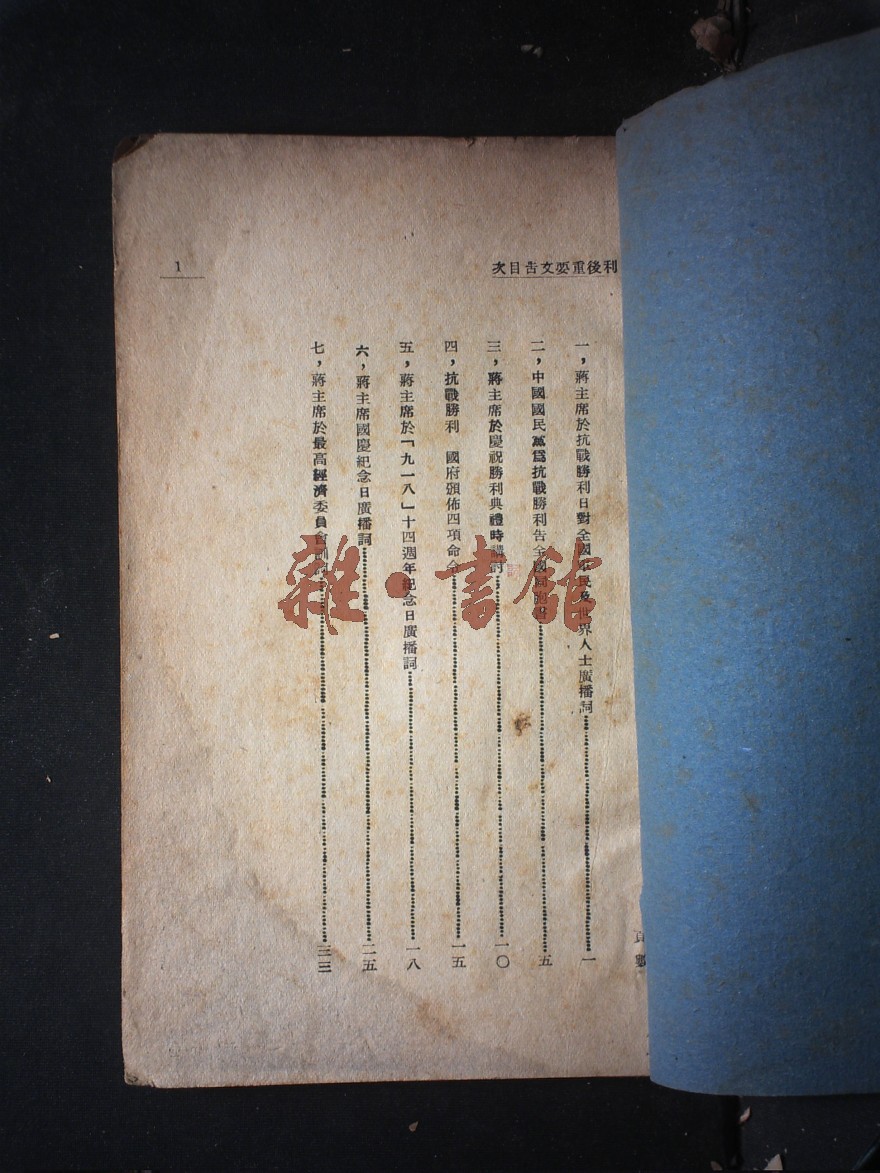 利後重要文告目次
1
頁
一，蔣主席於抗戰勝利日對全國軍民及世界人士廣播詞 一
二，中國國民黨為抗戰勝利告全國同胞書 五
三，蔣主席於慶祝勝利典禮時講詞 一〇
四，抗戰勝利 國府頒佈四項命令 一五
五，蔣主席於「九一八」十四週年紀念日廣播詞 一八
六，蔣主席國慶紀念日廣播詞 二五
七，蔣主席於最高經濟委員會訓詞 三三
雜·書館